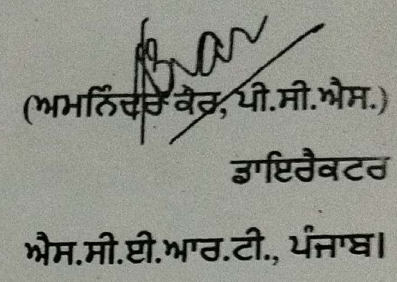 (ਅਮਨਿੰਦਰ ਕੌਰ, ਪੀ.ਸੀ.ਐਸ.)
ਡਾਇਰੈਕਟਰ
ਐਸ.ਸੀ.ਈ.ਆਰ.ਟੀ., ਪੰਜਾਬ।